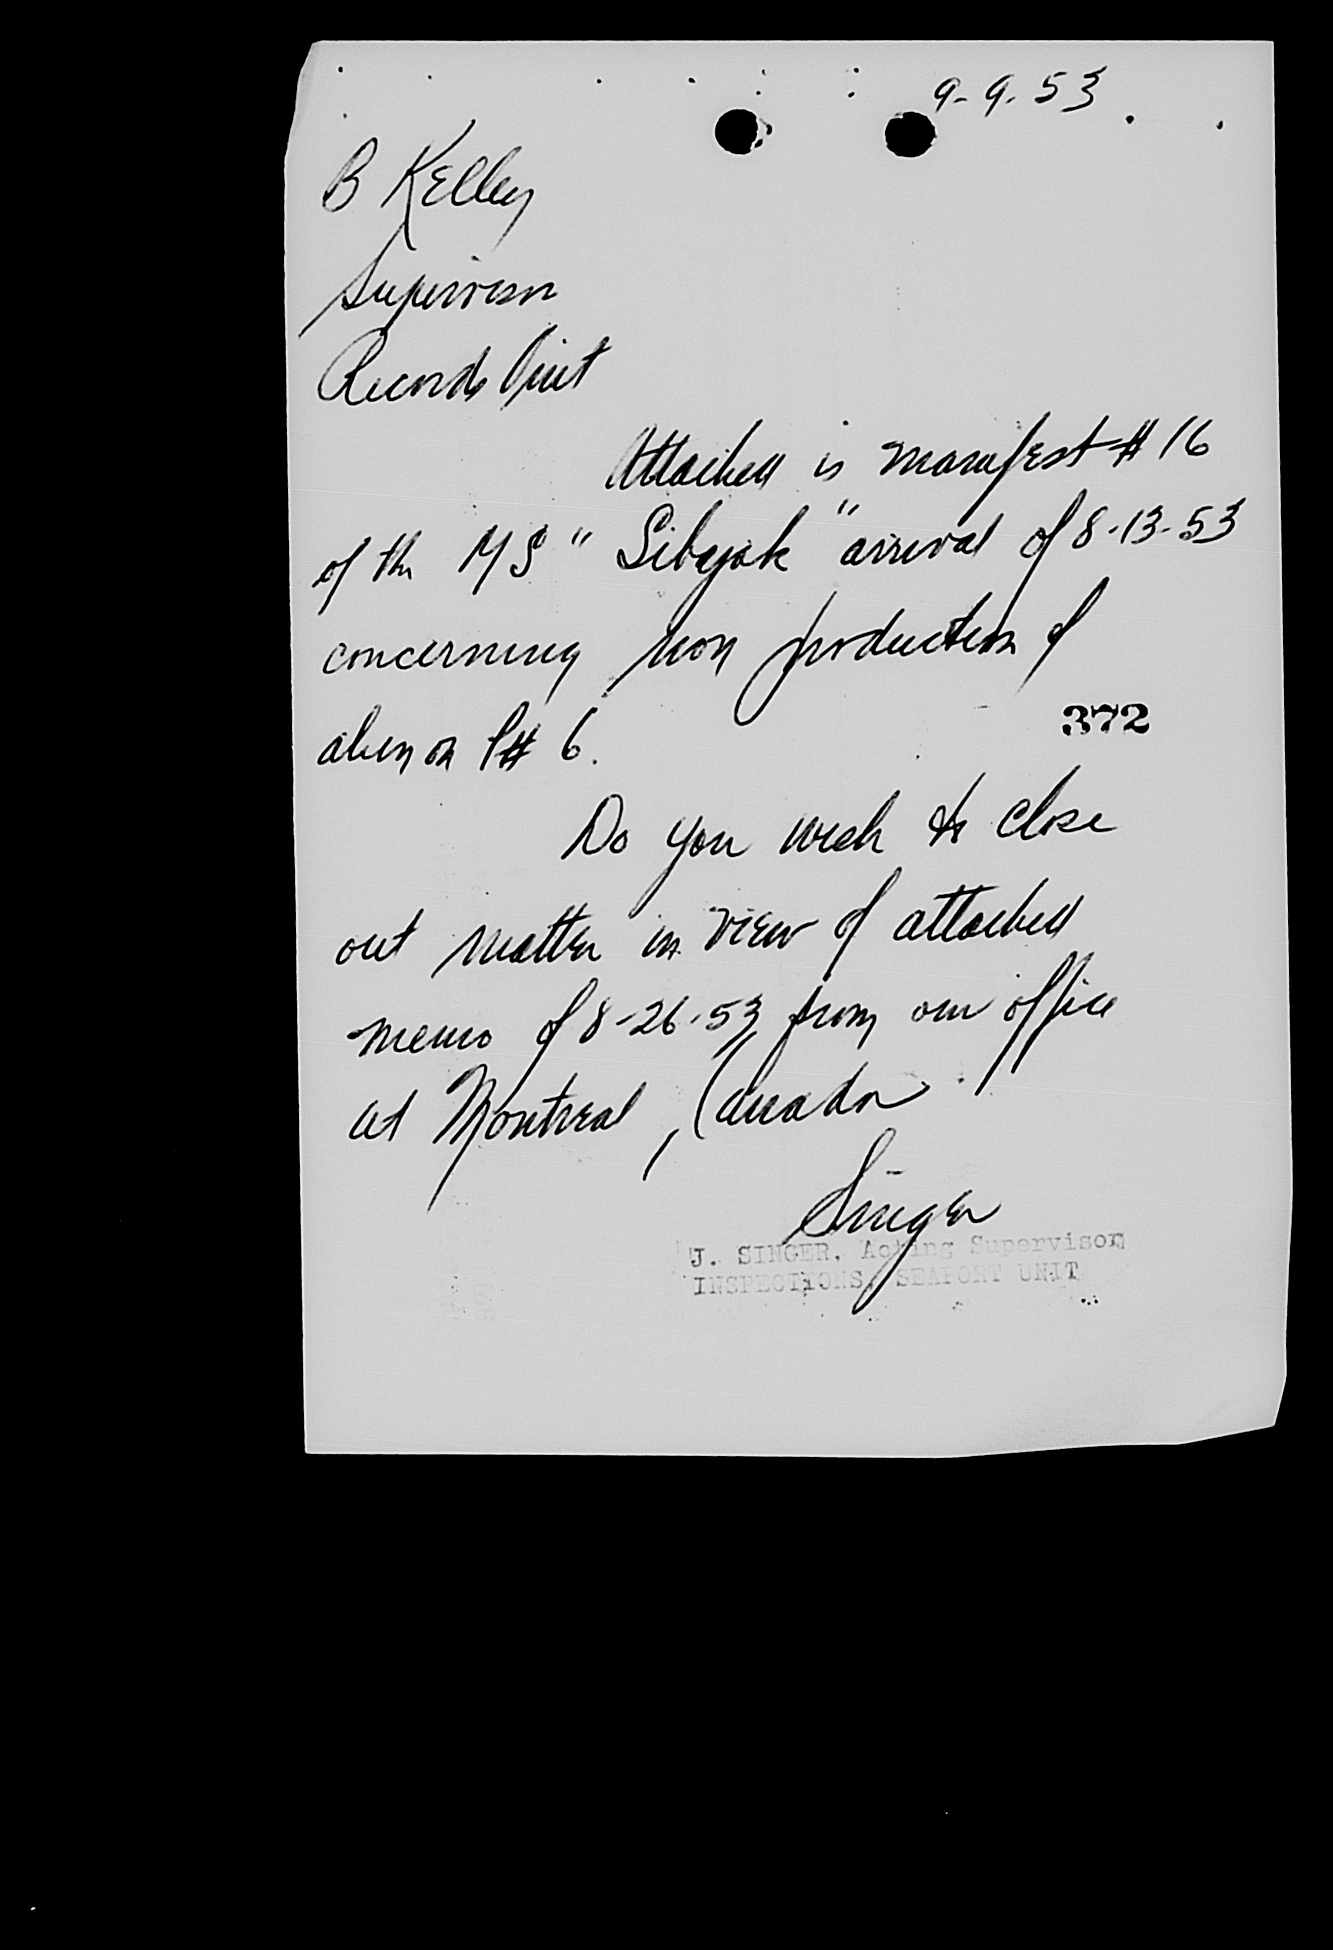 9-9-53
B Kelley
Supervisor
Records Unit
Attached is manifest # 16
of the MS "Sibajak" arrival of 8-13-53
concerning non production of
alien on l# 6.
372
Do you wish to close
out matter in view of attached
memo of 8-26-53 from our office
at Montreal, Canada
Singer
J. SINGER, Acting Supervisor
INSPECTIONS, SEAPORT UNIT